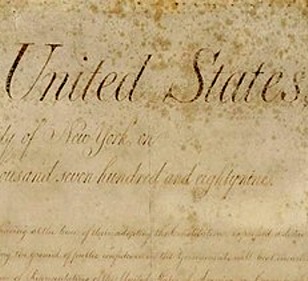 United States,
ty of New York, on
ousand seven hundred and eighty nine.
having at the time of their adopting the Constitution, expressed a desire
ing the ground of public confidence in the Government, will best ensure
of the United States